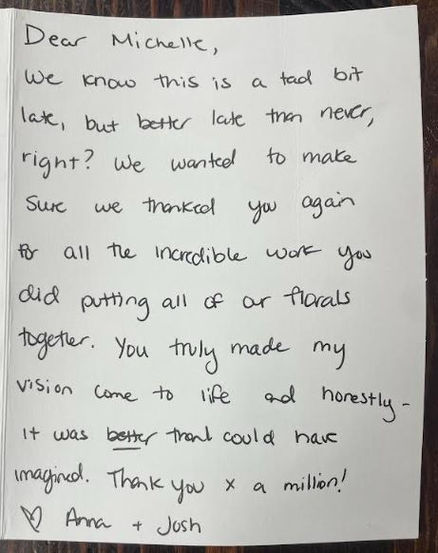 Dear Michelle,
We know this is a tad bit
late, but better late than never,
right? We wanted to make
sure we thanked you again
for all the incredible work you
did putting all of our florals
together. You truly made my
vision come to life and honestly-
it was better than I could have
imagined. Thank you x a million!
♡ Anna + Josh